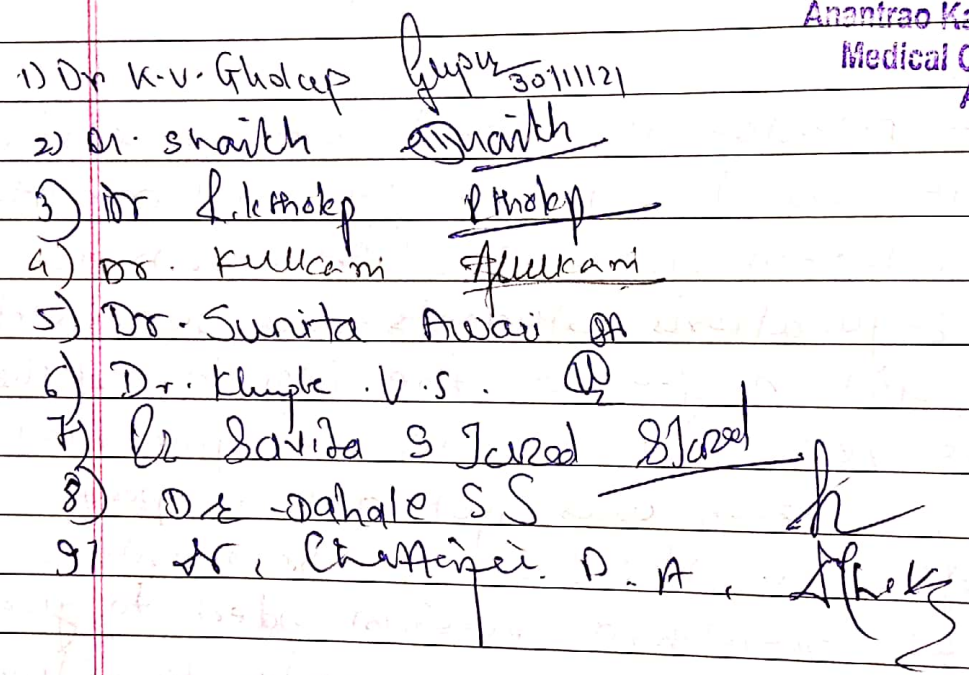 Anantrao Ka
Medical C
1) Dr K.V. Gholap 30/11/21
2) Dr. Shaikh Shaikh
3) Dr R.k tholep Ptholep
4) Dr. Kulkarni Akulkarni
5) Dr. Sunita Awari SA
6) Dr. Khuple .V.S.
7) Dr Savita S Jarad SJarad
8) Dr Dahale SS
9) Dr. D.A.